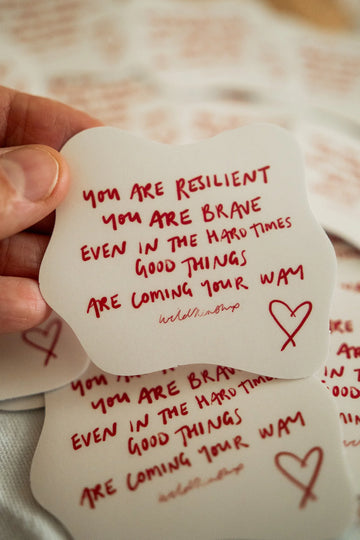 you ARE RESILIENT
you ARE BRAVE
EVEN IN THE HARD TIMES
GOOD THINGS
ARE COMING YOUR WAY
you ARE BRAVE
EVEN IN THE HARD TIMES
GOOD THINGS
ARE COMING YOUR WAY